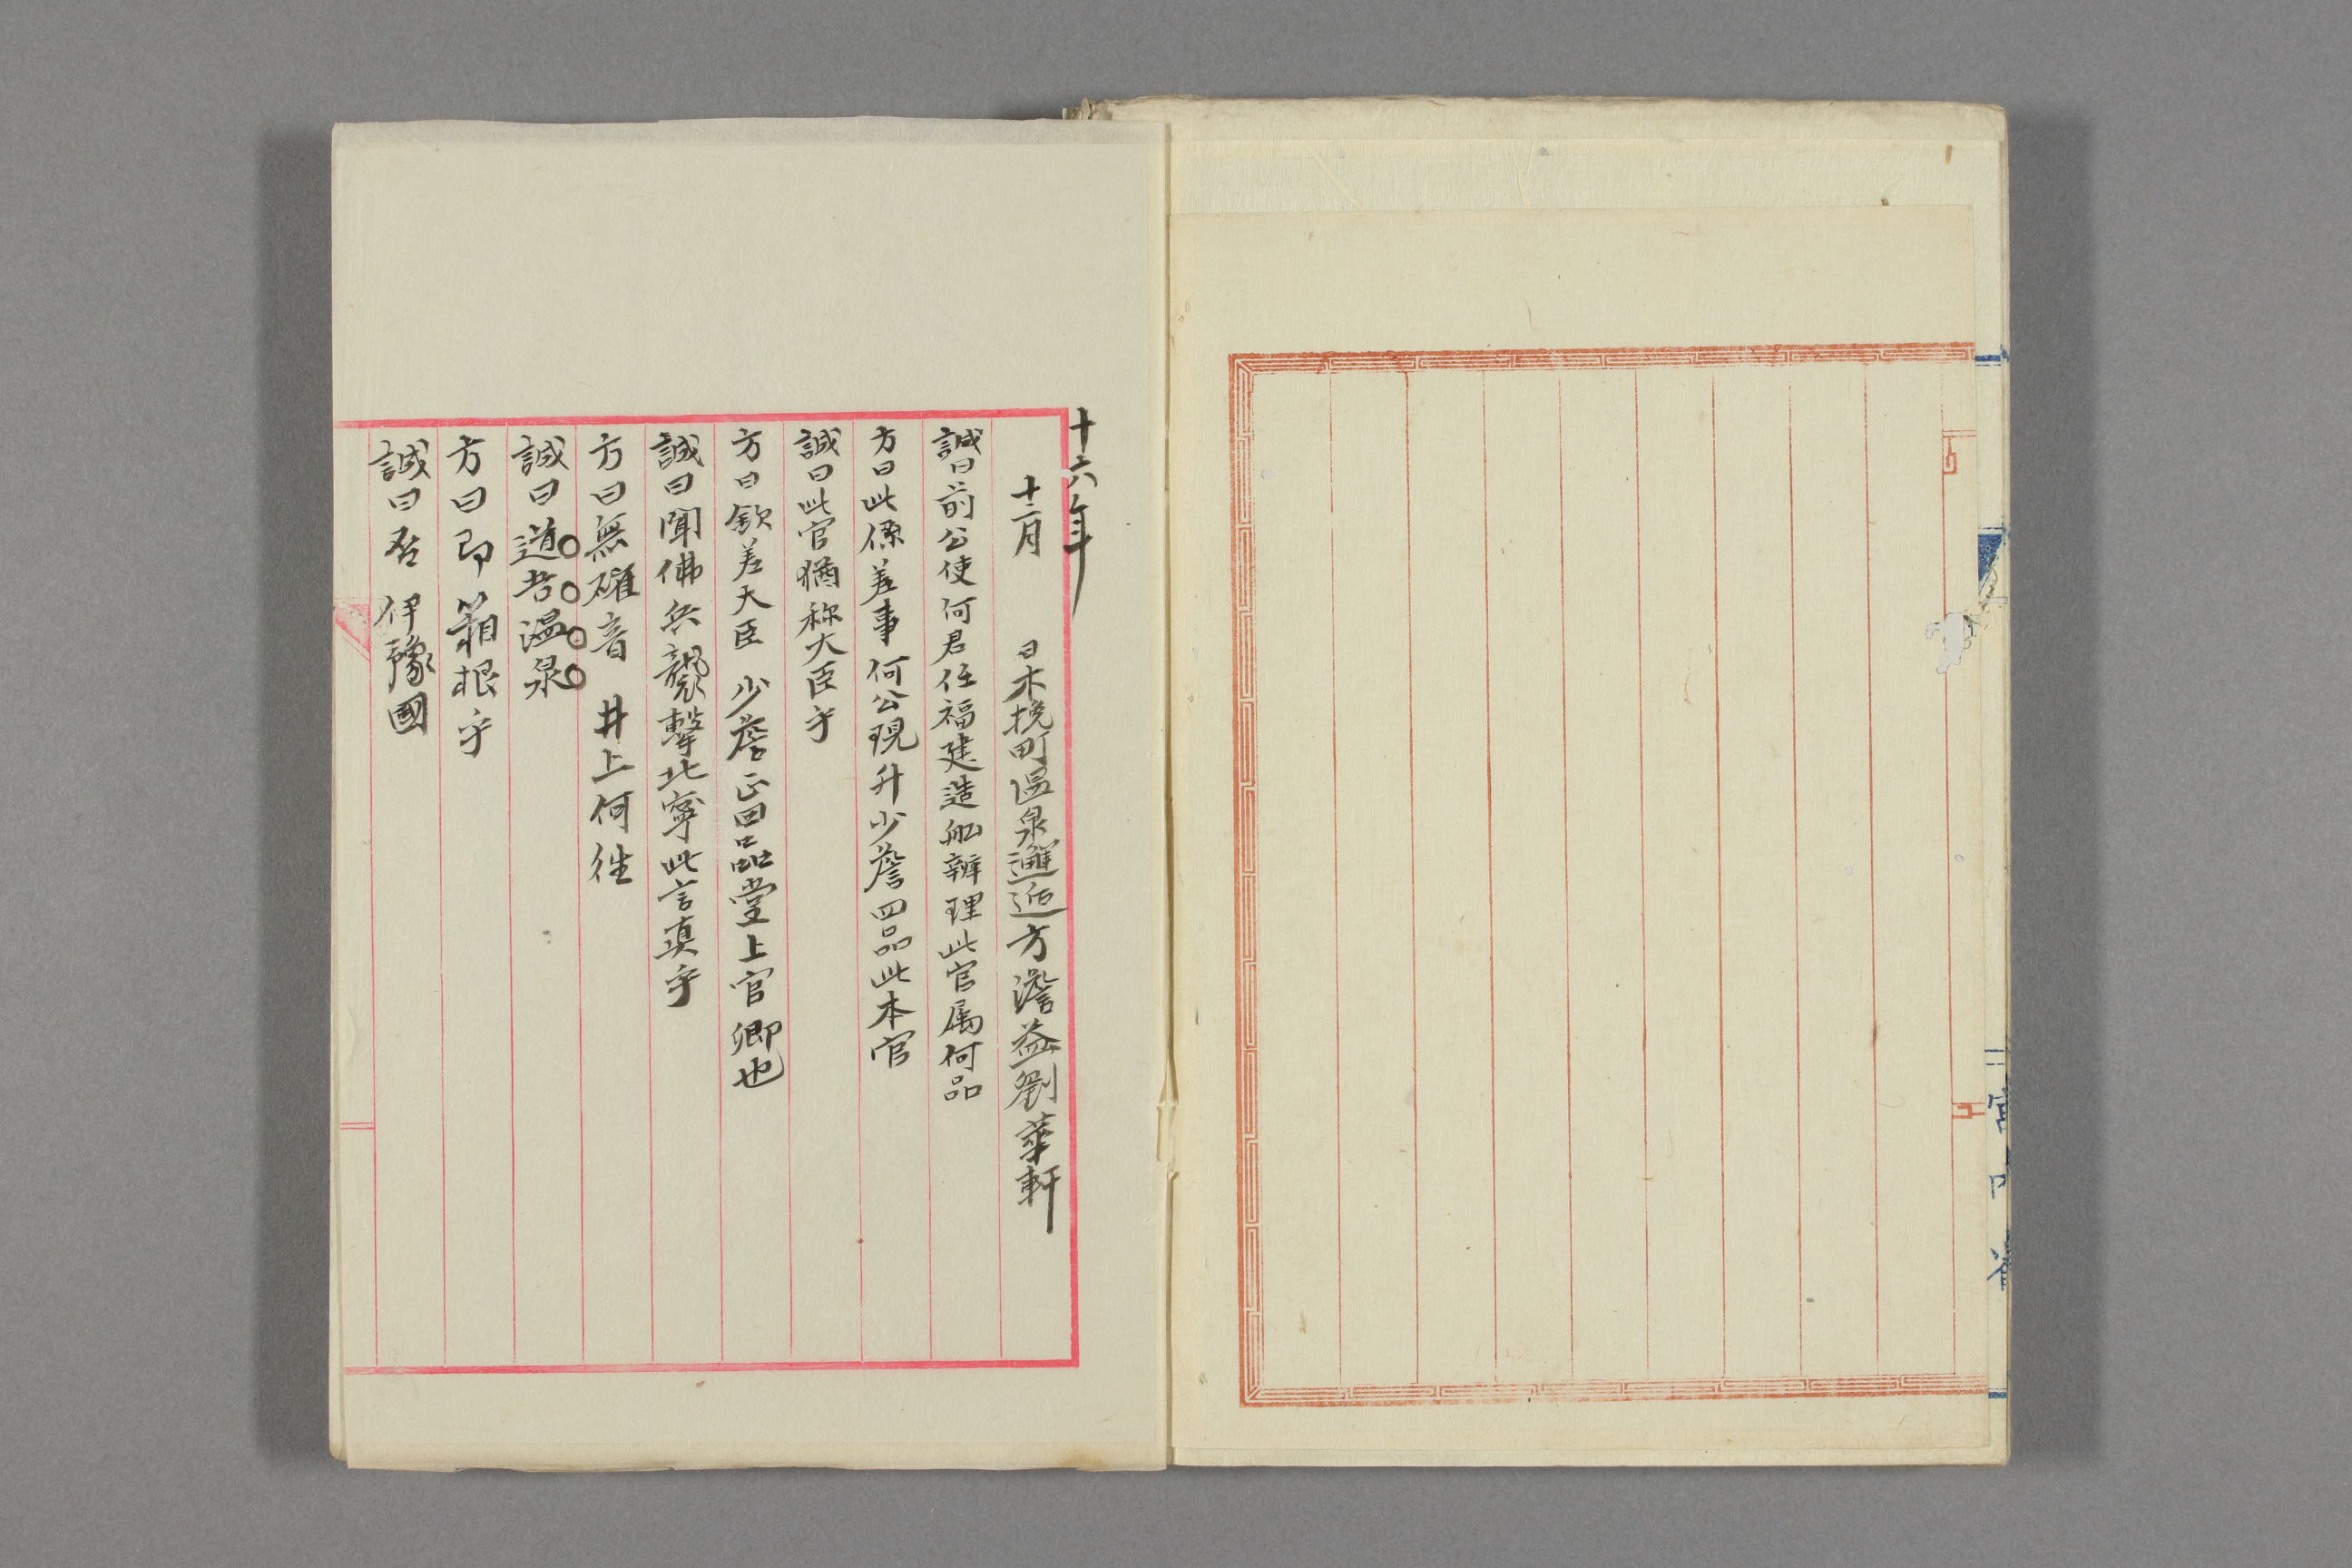 宮内省
十六年
十二月　日木挽町温泉邂逅方濬益劉華軒
誠曰前公使何君任福建造船辦理此官属何品
方曰此係差事何公現升少詹四品此本官
誠曰此官猶称大臣乎
方曰欽差大臣　少詹正四品堂上官卿也
誠曰聞佛兵襲擊北寧此言真乎
方曰無確音　井上何往
誠曰道後温泉
方曰即箱根乎
誠曰否　伊豫國